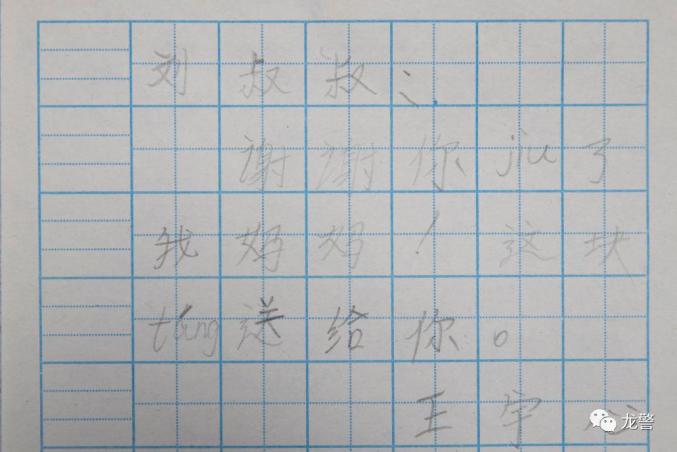 刘叔叔：
谢谢你jiu了
我妈妈！这块
táng送给你。
王宇心
龙警